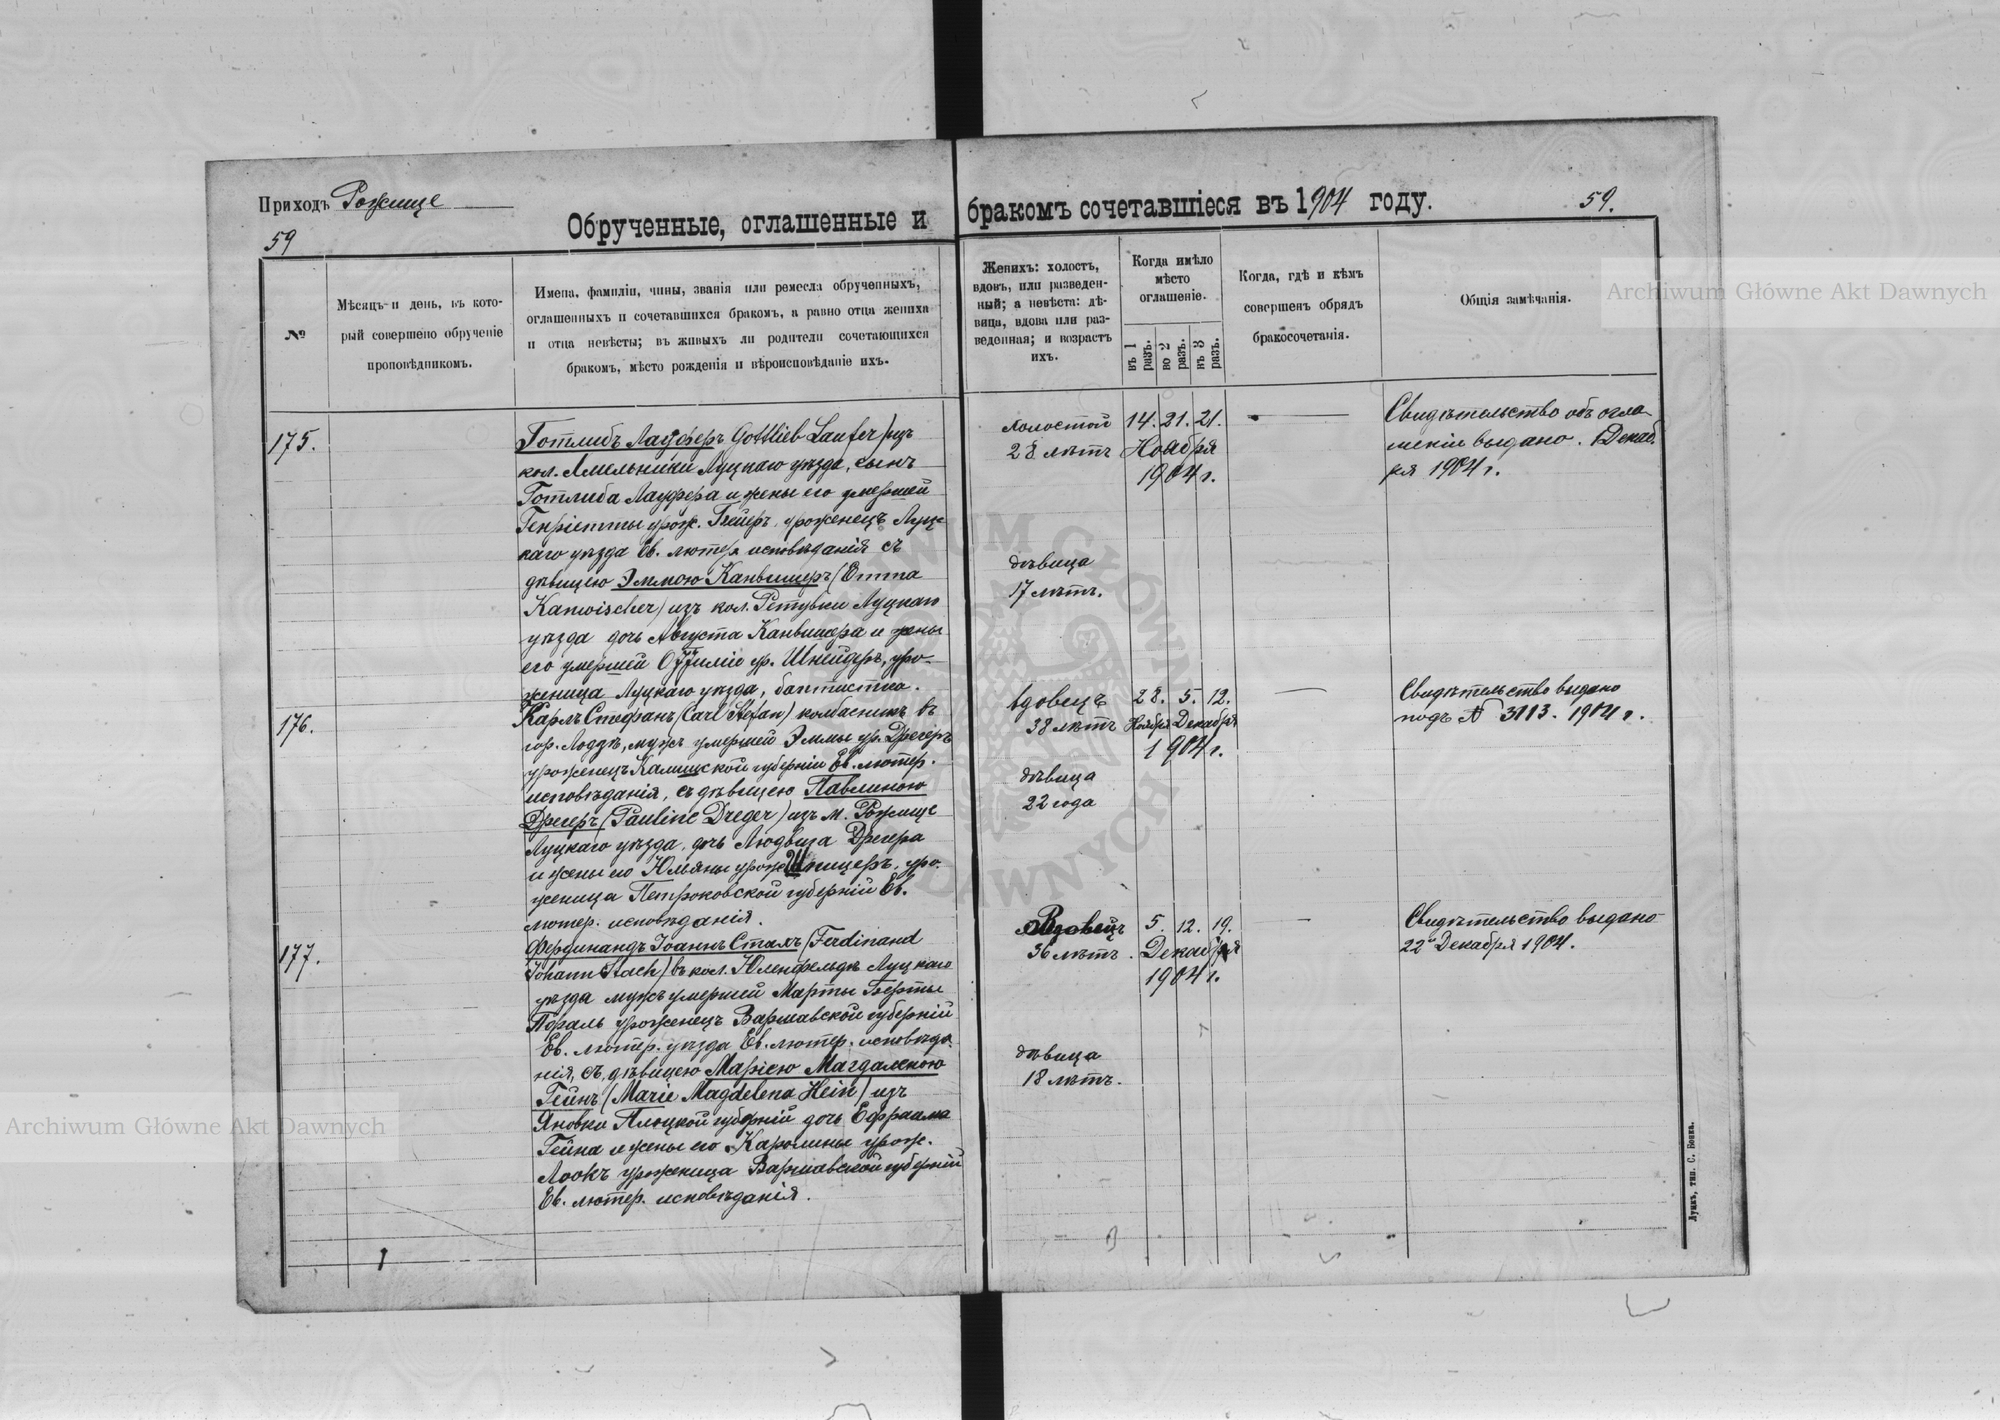 Приходъ Рожище
59
Обрученные, оглашенные и бракомъ сочетавшіеся въ 1904 году.
59.
№
Мѣсяцъ и день, въ кото-
рый совершено обрученіе
проповѣдникомъ.
Имена, фамиліи, чины, званія или ремесла обрученныхъ,
оглашенныхъ и сочетавшихся бракомъ, а равно отца жениха
и отца невѣсты; въ живыхъ ли родители сочетающихся
бракомъ, мѣсто рожденія и вѣроисповѣданіе ихъ.
Женихъ: холостъ,
вдовъ, или разведен-
ный; а невѣста: дѣ-
вица, вдова или раз-
веденная; и возрастъ
ихъ.
Когда имѣло
мѣсто
оглашеніе.
въ 1 разъ.
во 2 разъ.
въ 3 разъ.
Когда, гдѣ и кѣмъ
совершенъ обрядъ
бракосочетанія.
Общія замѣчанія.
175.
Готлибъ Лауферъ Gottlieb Laufer) изъ
кол. Амельники Луцкаго уѣзда, сынъ
Готлиба Лауфера и жены его умершей
Генріетты урож. Гейеръ, уроженецъ Луц-
каго уѣзда Ев. лютер исповѣданія съ
дѣвицею Эммою Канвишеръ (Emma
Kanwischer) изъ кол. Ретувки Луцкаго
уѣзда дочь Августа Канвишера и жены
его умершей Оттиліи ур. Шнейдеръ, уро-
женица Луцкаго уѣзда, баптистка.
холостой
28 лѣтъ
дѣвица
17 лѣтъ.
14. 21. 21.
Ноября
1904 г.
Свидѣтельство объ огла-
шеніи выдано. Декаб.
ря 1904 г.
176.
Карлъ Стефанъ (Carl Stefan) колбасникъ въ
гор. Лодзѣ, мужъ умершей Эммы ур. Дрегеръ
уроженецъ Калишской губерніи Ев. лютер.
исповѣданія, съ дѣвицею Павлиною
Дрегеръ (Pauline Dreger) изъ м. Рожище
Луцкаго уѣзда, дочь Людвига Дрегера
и жены его Юльяны урож Шпицеръ, уро-
женица Петроковской губерній Ев.
лютер. исповѣданія.
вдовецъ
38 лѣтъ
дѣвица
22 года
28. 5. 12.
Ноября Декабря
1904 г.
Свидѣтельство выдано
подъ № 3113. 1904 г.
177.
Фердинандъ Іоаннъ Стахъ (Ferdinand
Johann Stach) въ кол. Юленфельдъ Луцкаго
уѣзда мужъ умершей Марты Берты
Пораль уроженецъ Варшавской губерній
Ев. лютер. уѣзда Ев. лютер. исповѣда-
нія, съ дѣвицею Маріею Магдаленою
Гейнъ (Marie Magdelena Hein) изъ
Яновки Плоцкой губерній дочь Ефраима
Гейна и жены его Каролины урож.
Лоокъ уроженица Варшавской губерній
Ев. лютер. исповѣданія.
Вдовецъ
36 лѣтъ.
дѣвица
18 лѣтъ.
5. 12. 19.
Декабря
1904 г.
Свидѣтельство выдано
22 Декабря 1904.
Луцкъ, тип. С. Бонка.
Archiwum Główne Akt Dawnych
Archiwum Główne Akt Dawnych